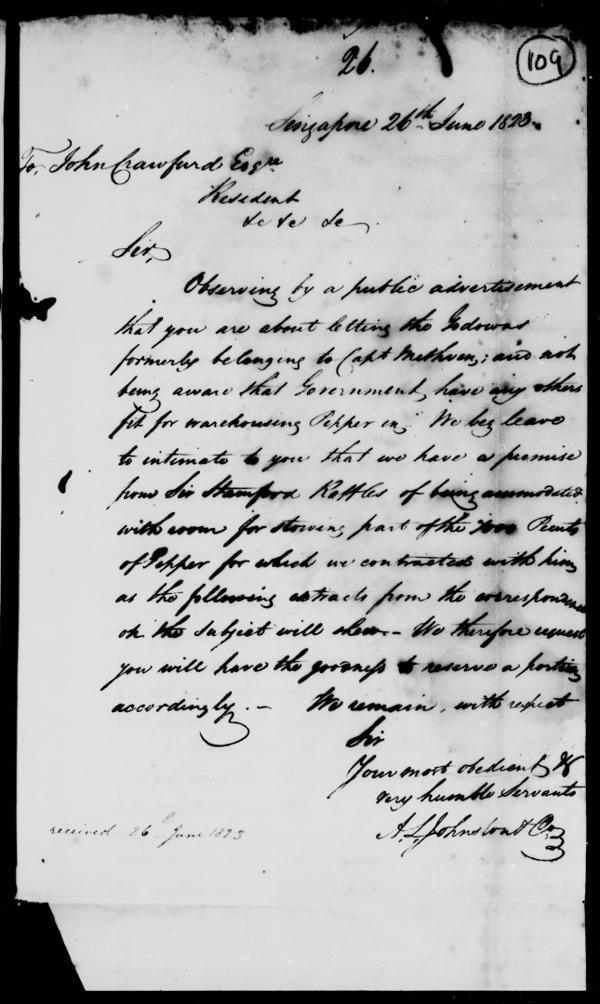 26.
109
Singapore 26th June 1823.
To, John Crawfurd Esqre
Resident
&c &c &c
Sir,
Observing by a public advertisement
that you are about letting the Godowns
formerly belonging to Capt Methven; and not
being aware that Government have any others
fit for warehousing Pepper in; We beg leave
to intimate to you that we have a promise
from Sir Stamford Raffles of being accomodated
with room for stowing part of the Peculs
of Pepper for which we contracted with him
as the following extracts from the correspondence
on the subject will shew. - We therefore request
you will have the goodness to reserve a portion
accordingly. - We remain, with respect
Sir
Your most obedient &
very humble Servants
A. L. Johnston & Co
received 26th June 1823